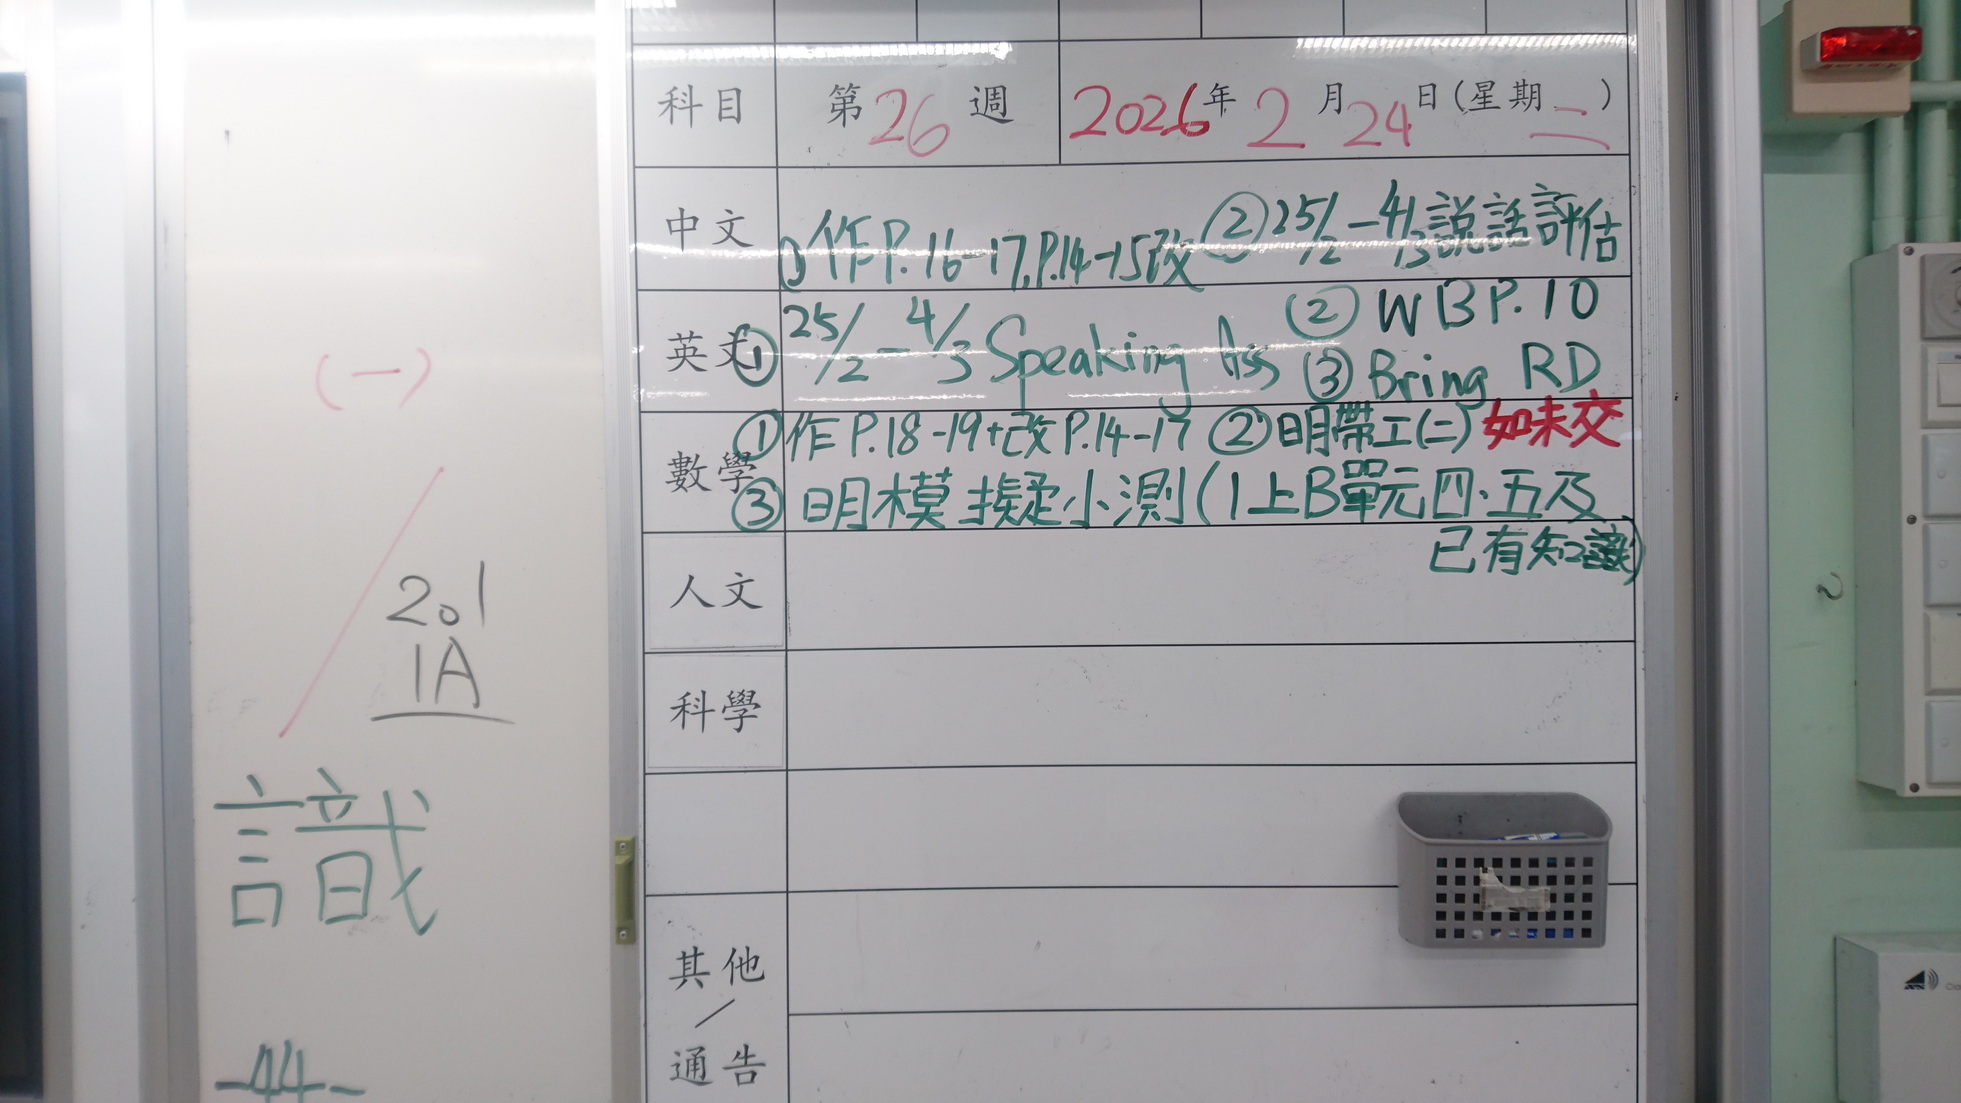 科目 第26週 2026年2月24日(星期二)
中文 ①作P.16-17,P.14-15改 ②25/2-4/3說話評估
英文 ①25/2-4/3 Speaking Ass ②WB P.10
③Bring RD
數學 ①作P.18-19+改P.14-17 ②明帶工(二)如未交
③明模擬小測(1上B單元四.五及
已有知識)
人文
科學
其他
/
通告
(一)
201
1A
識
-44-